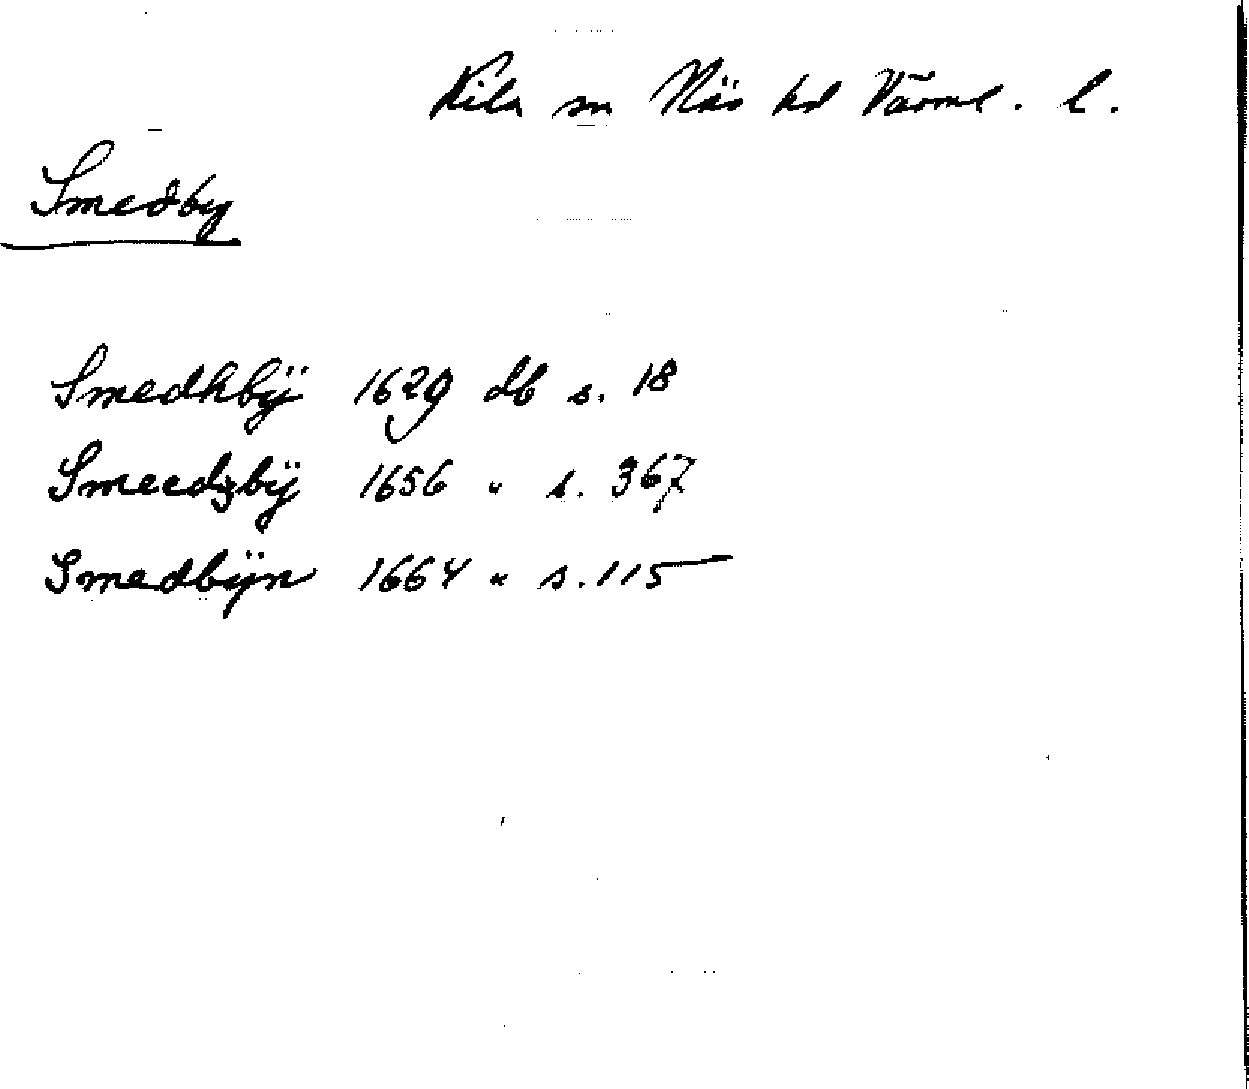 Kila sn Näs hd Värml. l.
Smedby
Smedhbÿ 1629 db s. 18
Smeedzbÿ 1656 " s. 367
Smedbÿn 1664 " s. 115